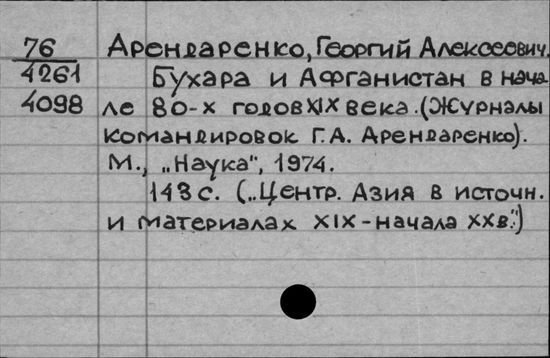 76 Арендаренко, Георгий Алексеевич.
4261 Бухара и Афганистан в нача-
4098 ле 80-х годов XIX века. (Журналы
командировок Г.А. Арендаренко).
М., „Наука", 1974.
143 с. („Центр. Азия в источн.
и материалах XIX - начала XXв.")